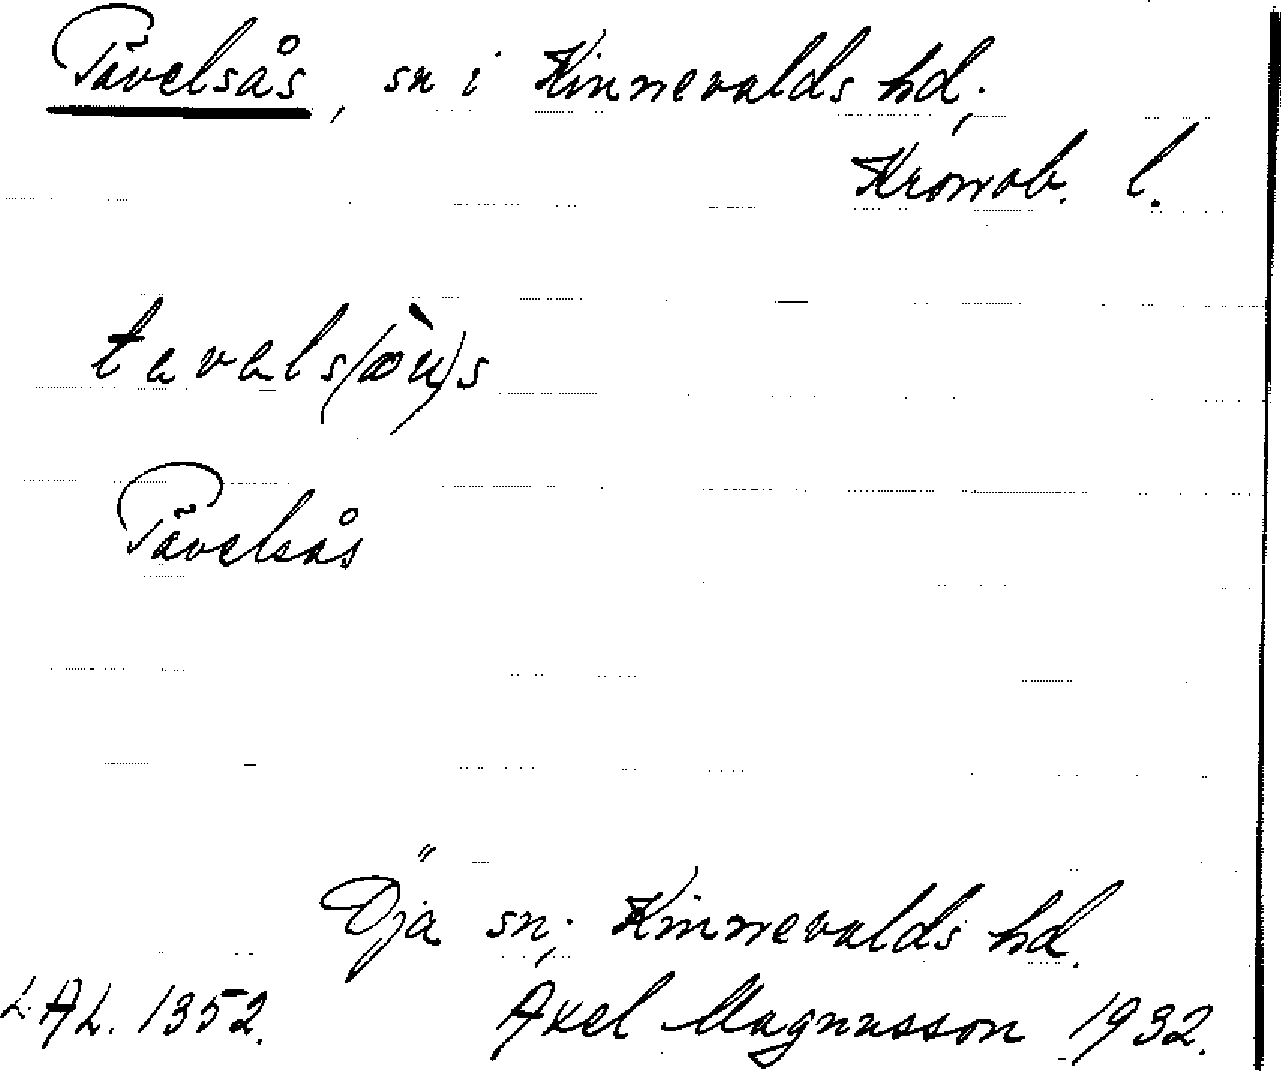 Tävelsås, sn i Kinnevalds hd;
Kronob. l.
tavals(òu)s
Tävelsås
Öja sn; Kinnevalds hd.
LAL. 1352. Axel Magnusson 1932.